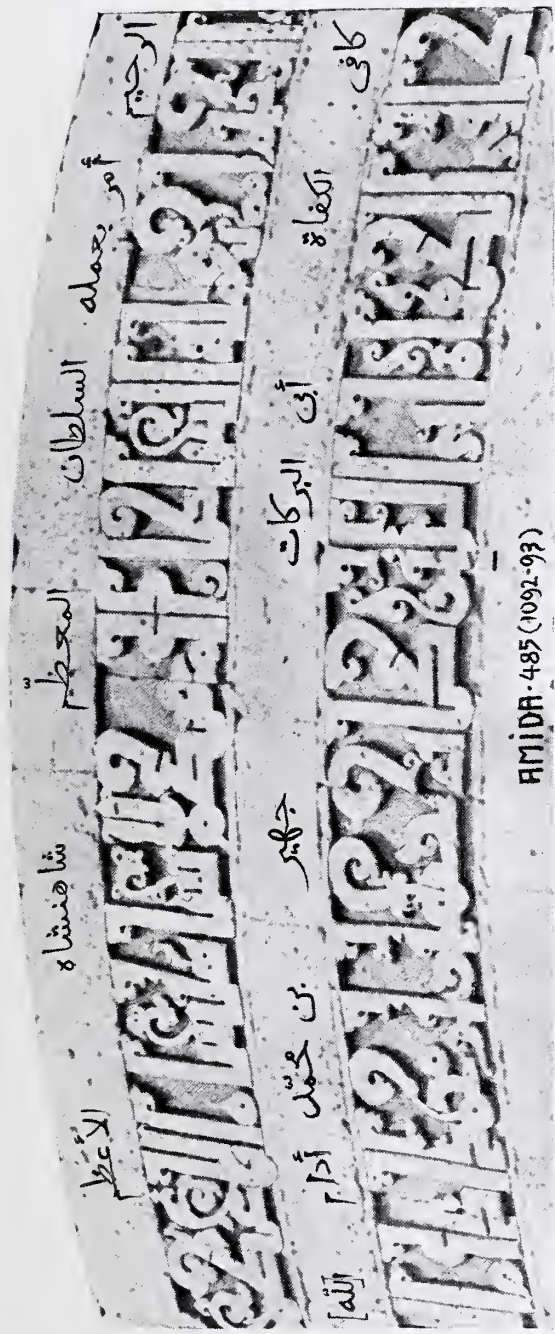 الرحيم أمر بعمله السلطان المعظّم شاهنشاه الأعظم
كافى الكفاة أبى البركات جهير بن محمّد أدام [الله]
AMIDA · 485 (1092-93)